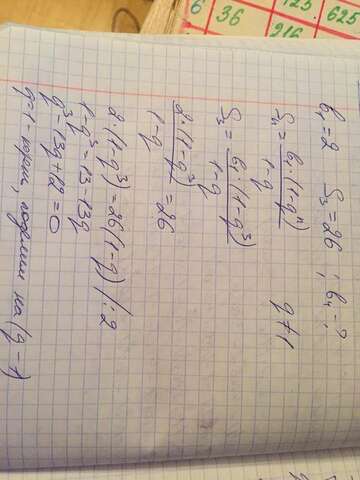 6 36 216
125 625
b₁=2 S₃=26; b₄-?
Sₙ = b₁·(1-qⁿ)/(1-q) q≠1
S₃ = b₁·(1-q³)/(1-q)
2·(1-q³)/(1-q) = 26
2·(1-q³)=26(1-q) |:2
1-q³=13-13q
q³-13q+12=0
q=1 - корень, поделим на (q-1)